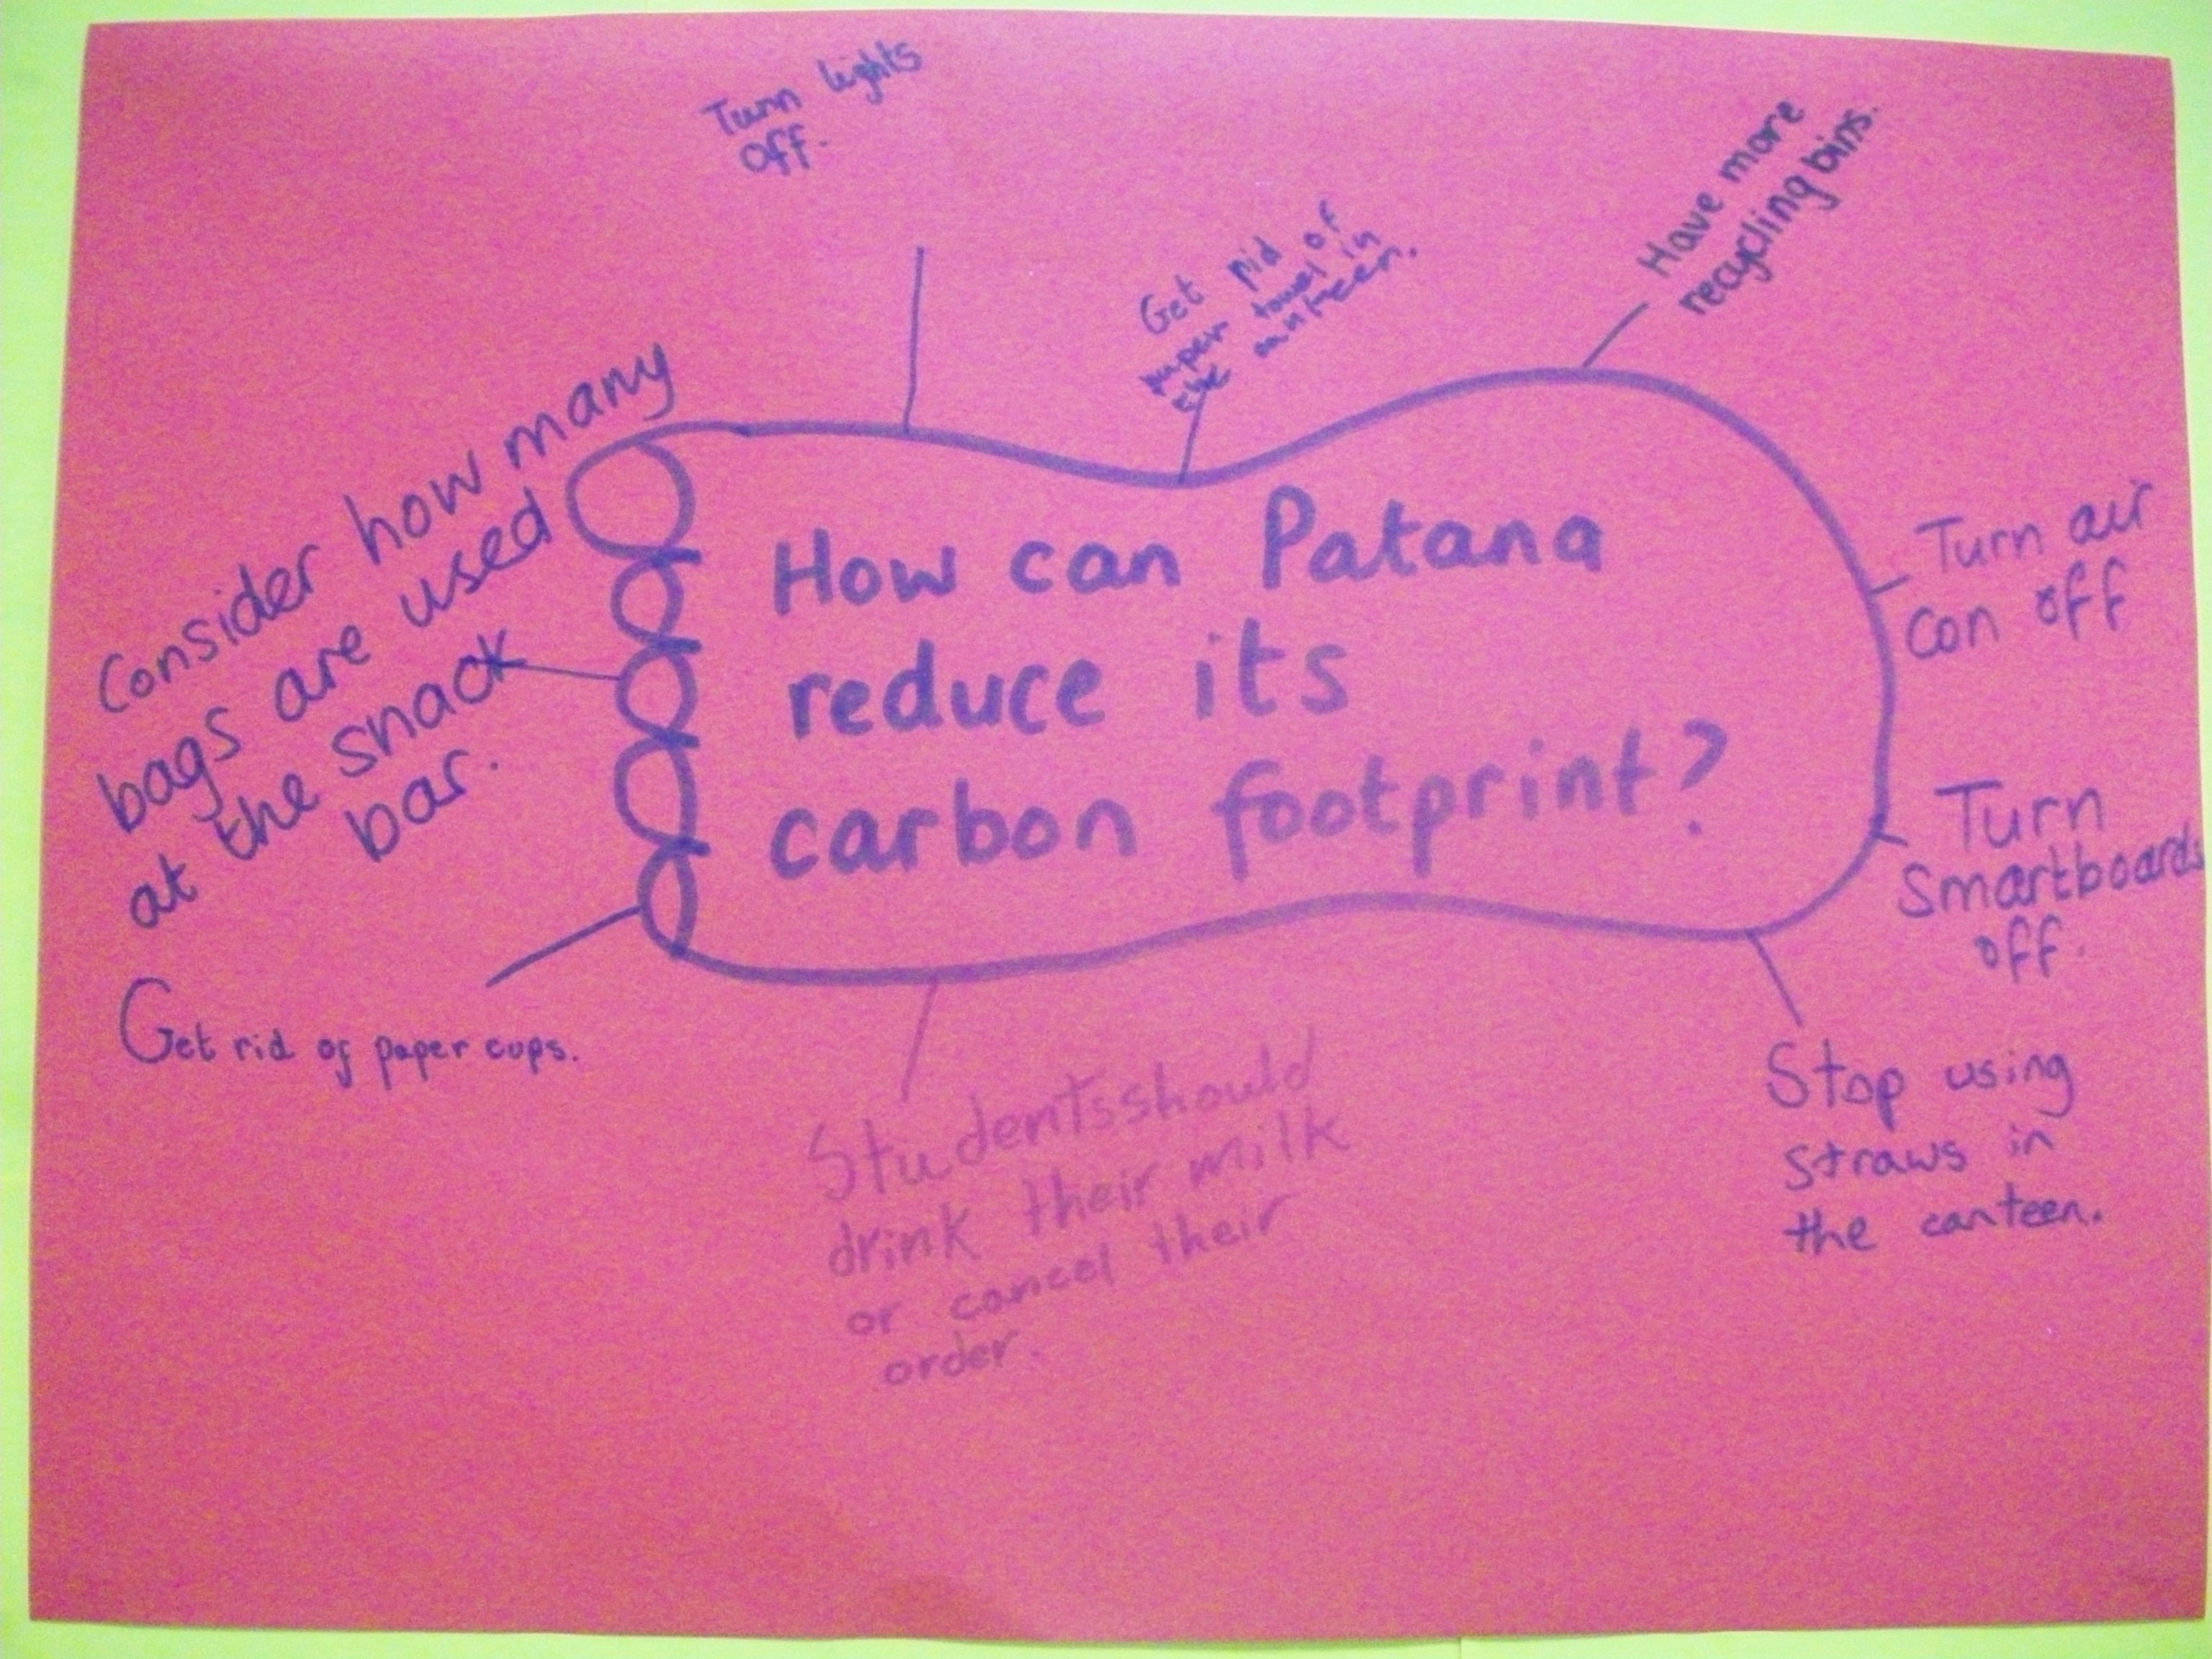 How can Patana
reduce its
carbon footprint?
Turn lights
off.
Get rid of
paper towel in
the canteen.
Have more
recycling bins.
Turn air
con off
Turn
Smartboards
off.
Stop using
straws in
the canteen.
Students should
drink their milk
or cancel their
order.
Get rid of paper cups.
Consider how many
bags are used
at the snack
bar.